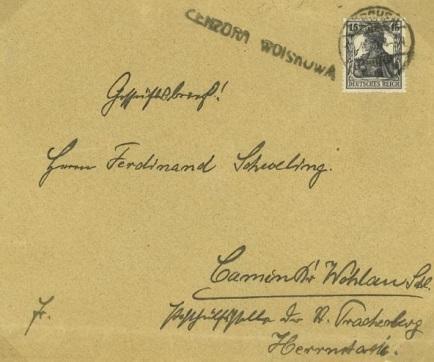 CENZORA WOJSKOWA
15 15
DEUTSCHES REICH
Geschäftsbrief!
Herrn Ferdinand Scheveling.
Camin Kr Wohlau Schl.
Posthülfstelle der St. Trachenberg
Herrnstadt.
Fr.